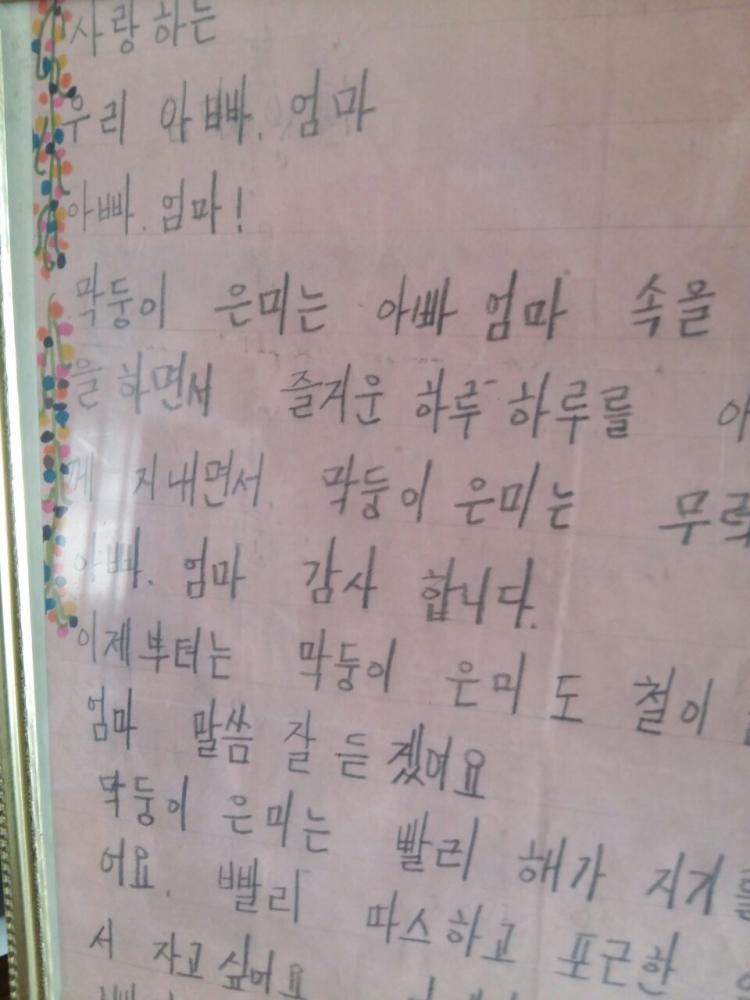 사랑하는
우리 아빠. 엄마
아빠. 엄마!
막둥이 은미는 아빠 엄마 속을
을 하면서 즐거운 하루 하루를
께 지내면서. 막둥이 은미는
아빠. 엄마 감사 합니다.
이제부터는 막둥이 은미도 철이
엄마 말씀 잘 듣겠어요
막둥이 은미는 빨리 해가 지기를
어요. 빨리 따스하고 포근한
서 자고 싶어요